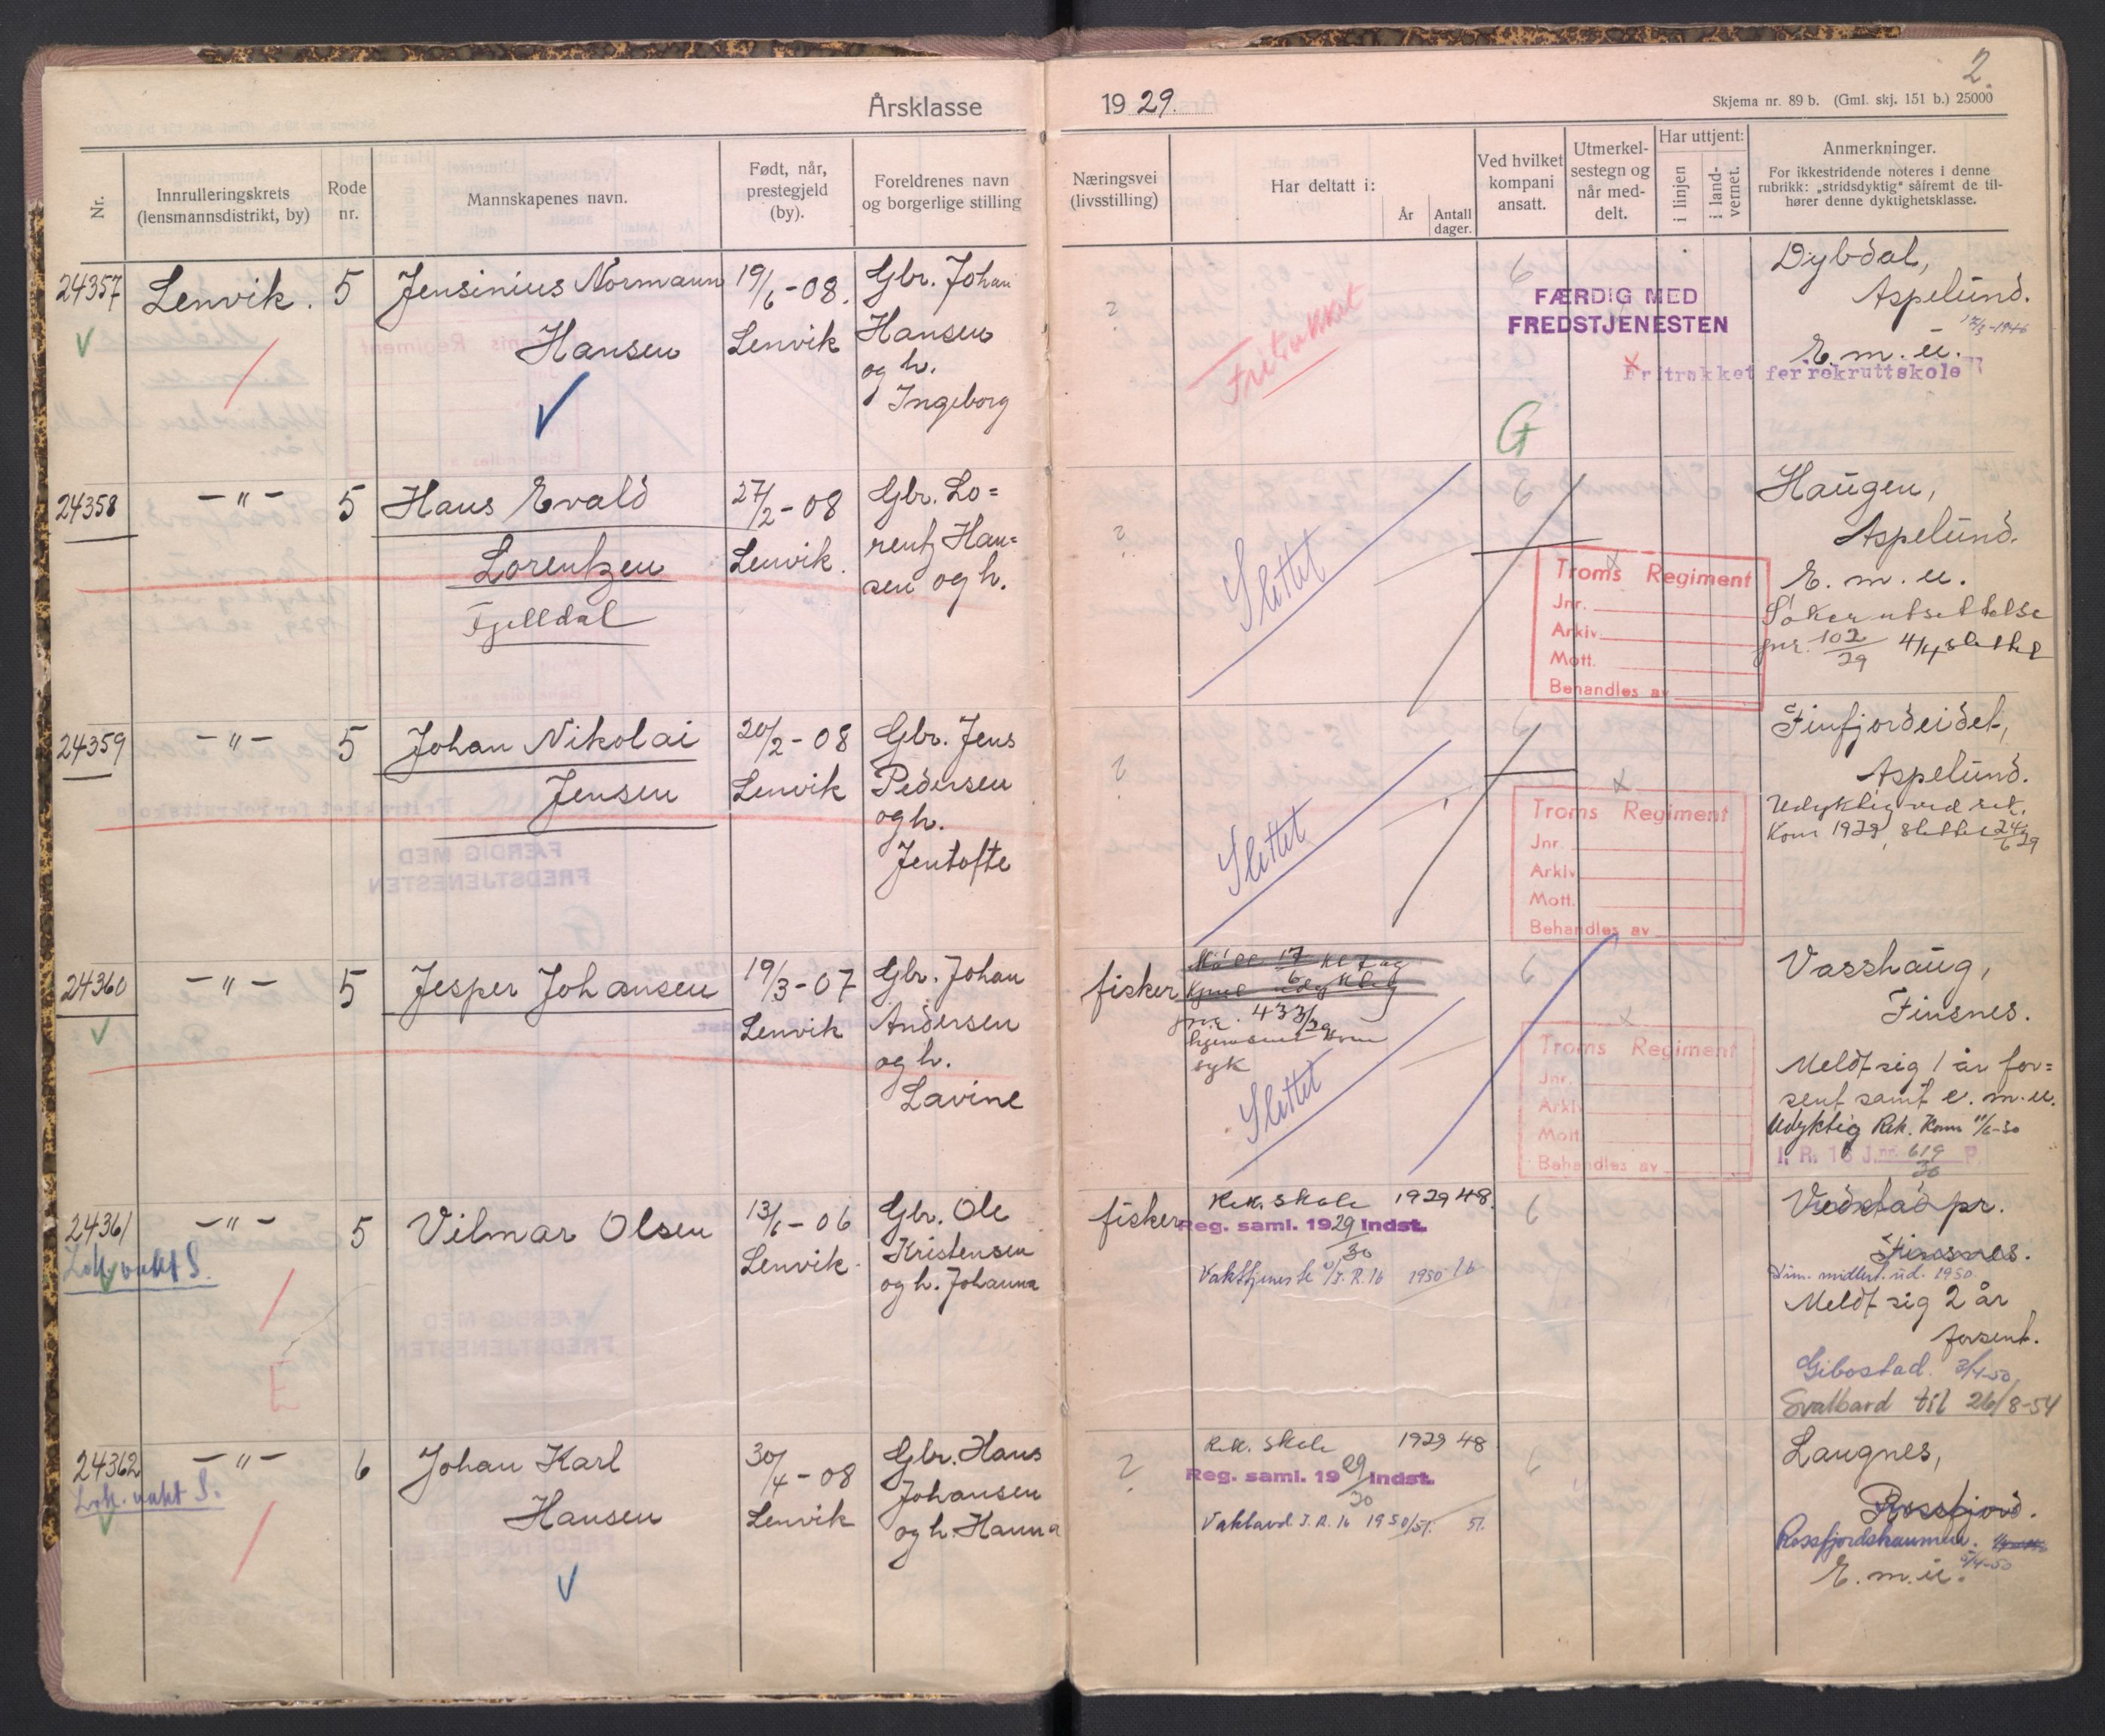 2.
Årsklasse 1929.
Skjema nr. 89 b. (Gml. skj. 151 b.) 25000
Nr.
Innrulleringskrets
(lensmannsdistrikt, by)
Rode
nr.
Mannskapenes navn.
Født, når,
prestegjeld
(by).
Foreldrenes navn
og borgerlige stilling
Næringsvei
(livsstilling)
Har deltatt i:
År
Antall
dager.
Ved hvilket
kompani
ansatt.
Utmerkel-
sestegn og
når med-
delt.
Har uttjent:
i linjen
i land-
vernet.
Anmerkninger.
For ikkestridende noteres i denne
rubrikk: „stridsdyktig“ såfremt de til-
hører denne dyktighetsklasse.
24357 Lenvik. 5 Jensinius Normann
Hansen
19/6-08.
Lenvik
Gbr. Johan
Hansen
og h.
Ingeborg
?
Fritukket
6
FÆRDIG MED
FREDSTJENESTEN
G
Dybdal,
Aspelund.
E. m. u.
Fritrukket for rekruttskole
24358 -"- 5 Hans Evald
Lorentzen
Fjelldal
27/2-08
Lenvik.
Gbr. Lo=
rentz Han=
sen og h.
?
Slettet
6
Troms Regiment
Jnr.
Arkiv
Mott.
Behandles av
Haugen,
Aspelund.
E. m. u.
Søker utsettelse
jnr. 102/29 4/4 slettet
24359 -"- 5 Johan Nikolai
Jensen
20/2-08
Lenvik
Gbr. Jens
Pedersen
og h.
Jentofte
?
Slettet
6
Troms Regiment
Jnr.
Arkiv
Mott.
Behandles av
Finfjordeidet,
Aspelund.
Udyktig ved rek.
Kom 1929, slettet 24/6 29
24360 -"- 5 Jesper Johansen
19/3-07
Lenvik
Gbr. Johan
Andersen
og h.
Lavine
fisker
jnr. 433/29
hjemsendt som
syk
Slettet
6
Troms Regiment
Jnr.
Arkiv
Mott.
Behandles av
Vasshaug,
Finsnes.
Meldt sig 1 år for=
sent samt e. m. u.
Udyktig Rek. Kom 11/6-30
I. R. 16 J.nr. 619/30 P.
24361 -"- 5 Vilmar Olsen
Lok. vakt S.
E
13/6-06
Lenvik.
Gbr. Ole
Kristensen
og h. Johanna
fisker
Rek. skole 1929 48.
Reg. saml. 1929/30 Indst.
Vakttjeneste v/I.R.16 1950 16
6
Vedstad pr.
Finsnes.
Dim. midlert. ud. 1950
Meldt sig 2 år
forsent.
Gibostad. 3/4-50.
Svalbard til 26/8-54
24362 -"- 6 Johan Karl
Hansen
Lok. vakt S.
30/4-08
Lenvik
Gbr. Hans
Johansen
og h. Hanna
?
Rek. skole 1929 48
Reg. saml. 1929/30 Indst.
Vaktavd. I.R. 16 1950/51. 51.
6
Laugnes,
Rossfjord.
Rossfjordstraumen.
3/4-50
E. m. u.